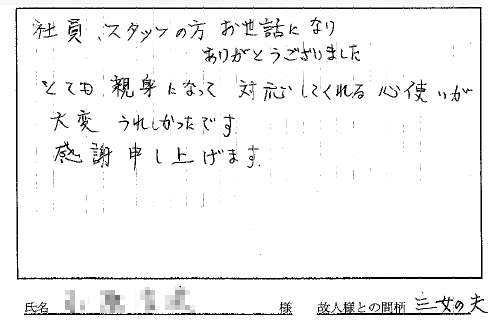 社員、スタッフの方 お世話になり
ありがとうございました
とても 親身になって 対応してくれる 心使いが
大変 うれしかったです
感謝申し上げます。
氏名 様 故人様との間柄 三女の夫